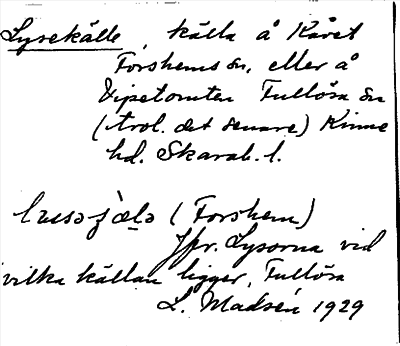 Lysekälle, källa å Råret
Forshems sn, eller å
Vipetomten Fullösa sn
(trol. det senare) Kinne
hd. Skarab. l.
(Forshem)
Jfr. Lysorna vid
vilka källan ligger, Fullösa
L. Madsén 1929